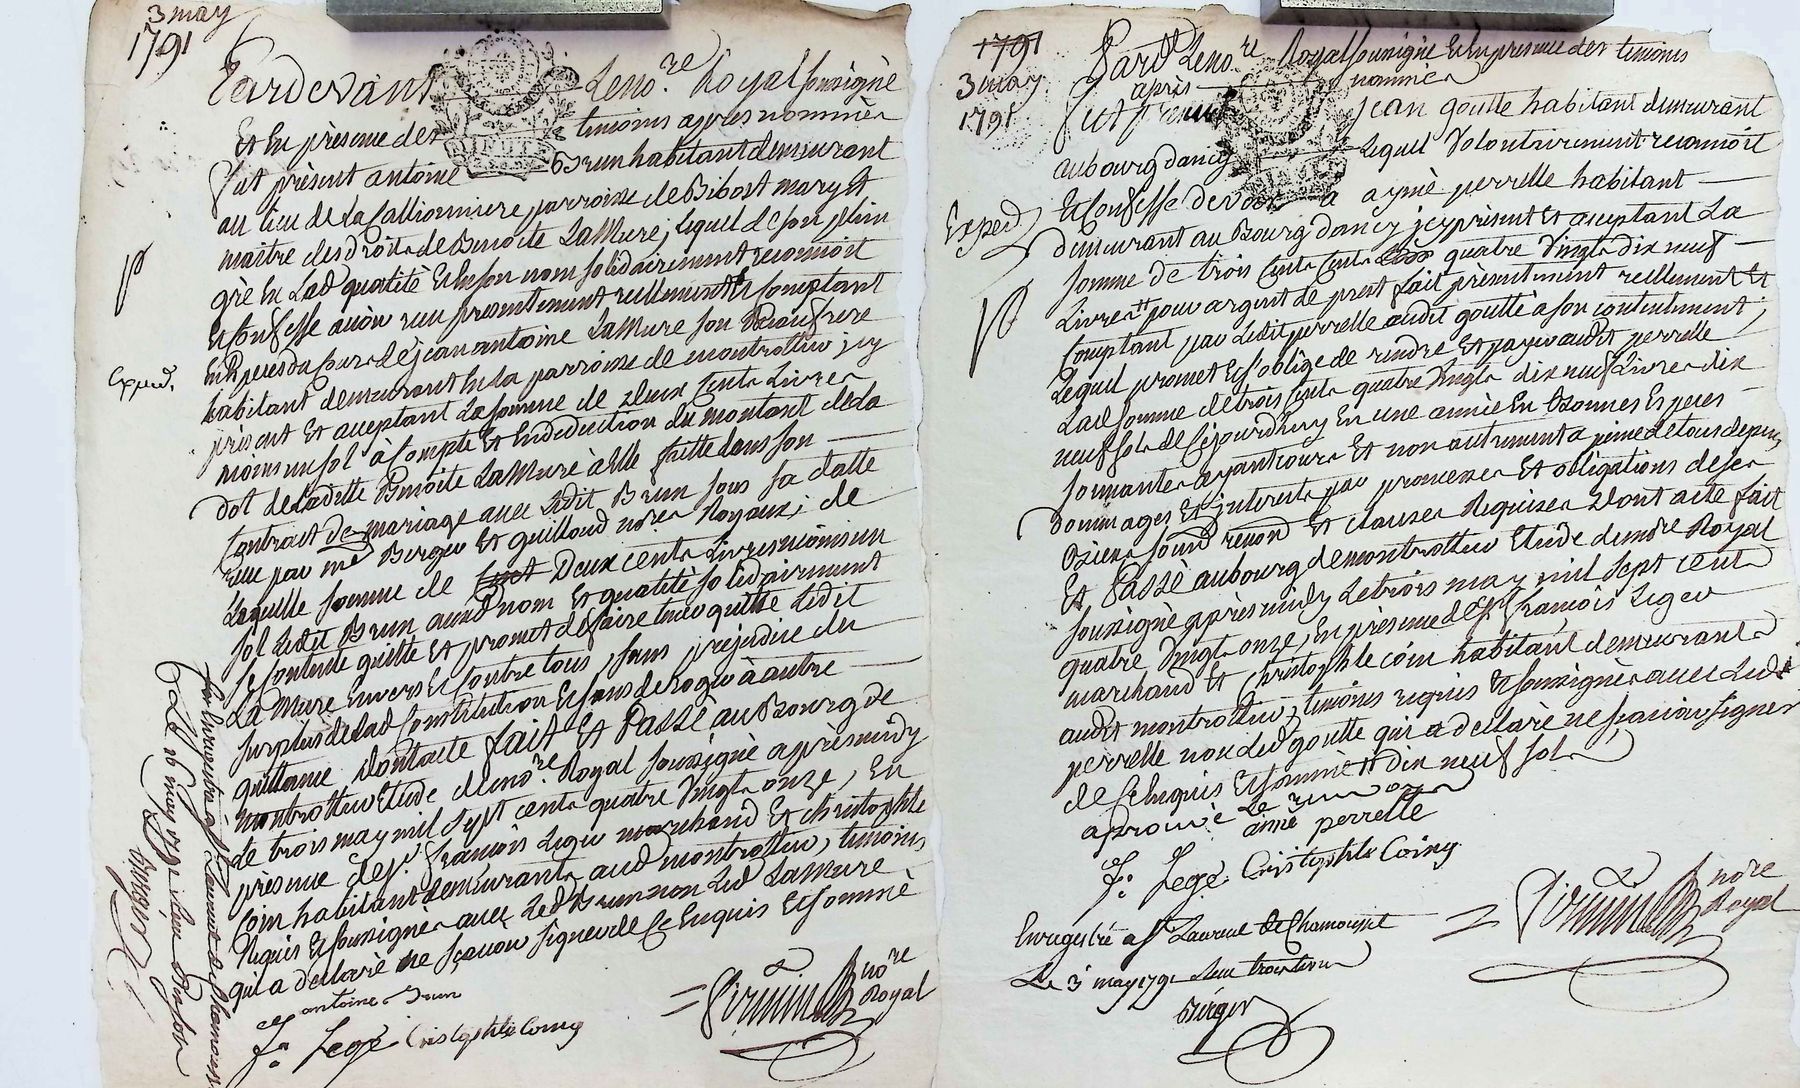 3 may
1791
Pardevant Le no.re Royal soussigné
Et En présence des temoins après nommés
fut présent antoine Brun habitant demeurant
au lieu de la parroisse de Bibost mary Et
maitre des droits de Benoite LaMure, lequel de son plein
gré En Lad qualité Et En son nom solidairement reconnoit
Et confesse avoir reçu presentement reellement Et comptant
En Especes du cours de jean antoine LaMure son Beaufrere
Exped.
habitant demeurant En la parroisse de montrottier, icy
présent Et acceptant La somme de deux Cents Livres
moins un sol à Compte Et En deduction du montant de la
dot de Laditte Benoite LaMure à Elle faitte dans son
Contract de mariage avec Ledit Brun sous sa datte
reçu par me Berger Et guilloud nores Royaux; de
Laquelle somme de Deux cents Livres moins un
sol Ledit Brun aud nom Et qualité solidairement
se contente quitte Et promet de faire tenir quitte Ledit
La Mure Envers Et Contre tous, sans préjudice du
surplus de Lad Constitution Et sans deroger à autre
quittance Dont acte fait Et Passé au Bourg de
montrottier Etude du no.re Royal soussigné après midy
Le trois may mil sept cents quatre Vingts onze, En
présence de sr. françois Leger marchand Et christophle
Coin habitants demeurants aud montrottier, temoins
Requis Et soussignés avec Led Brun non Led LaMure
qui a declaré ne sçavoir signer de Ce Enquis Et sommé
antoine Brun
fs Legé Cristophle Coing
nore
Royal
Enregistré a st Laurent de Chamousset
Le 16 may 1791
Berger
1791
3 may
1791
Pard Le no.re Royal soussigné Et En presence des temoins
après nommés
fut present jean goutte habitant demeurant
au bourg dancy Lequel Volontairement reconnoit
Et Confesse devoir a aymé perrelle habitant
Exped
demeurant au Bourg dancy jcy présent Et acceptant La
somme de trois Cents quatre Vingts dix neuf
Livres pour argent de prest fait présentement reellement Et
Comptant par Ledit perrelle audit goutte a son contentement,
Lequel promet Et s'oblige de rendre Et payer audit perrelle
Lad somme de trois Cents quatre Vingts dix neuf Livres dix
neuf sols de Cejourdhuy En une année En Bonnes Especes
sonnantes ayant cours Et non autrement a peine de tous depens
dommages Et interets par promesses Et obligations de ses
Biens soumd renond Et clauses Requises Dont acte fait
Et Passé au bourg de montrottier Etude du nore Royal
soussigné après midy Le trois may mil sept cents
quatre Vingts onze, En présence de sr françois Leger
marchand Et christophle coin habitants demeurants
audt montrottier, temoins requis Et soussignés avec Led
perrelle non Led goutte qui a declaré ne sçavoir signer
de Ce Enquis Et sommé Et dix neuf sols
aprouvé Le
aimé perrelle
fs Legé Cristophle Coing
nore
Royal
Enregistré a st Laurent de Chamousset
Le 3 may 1791
Berger